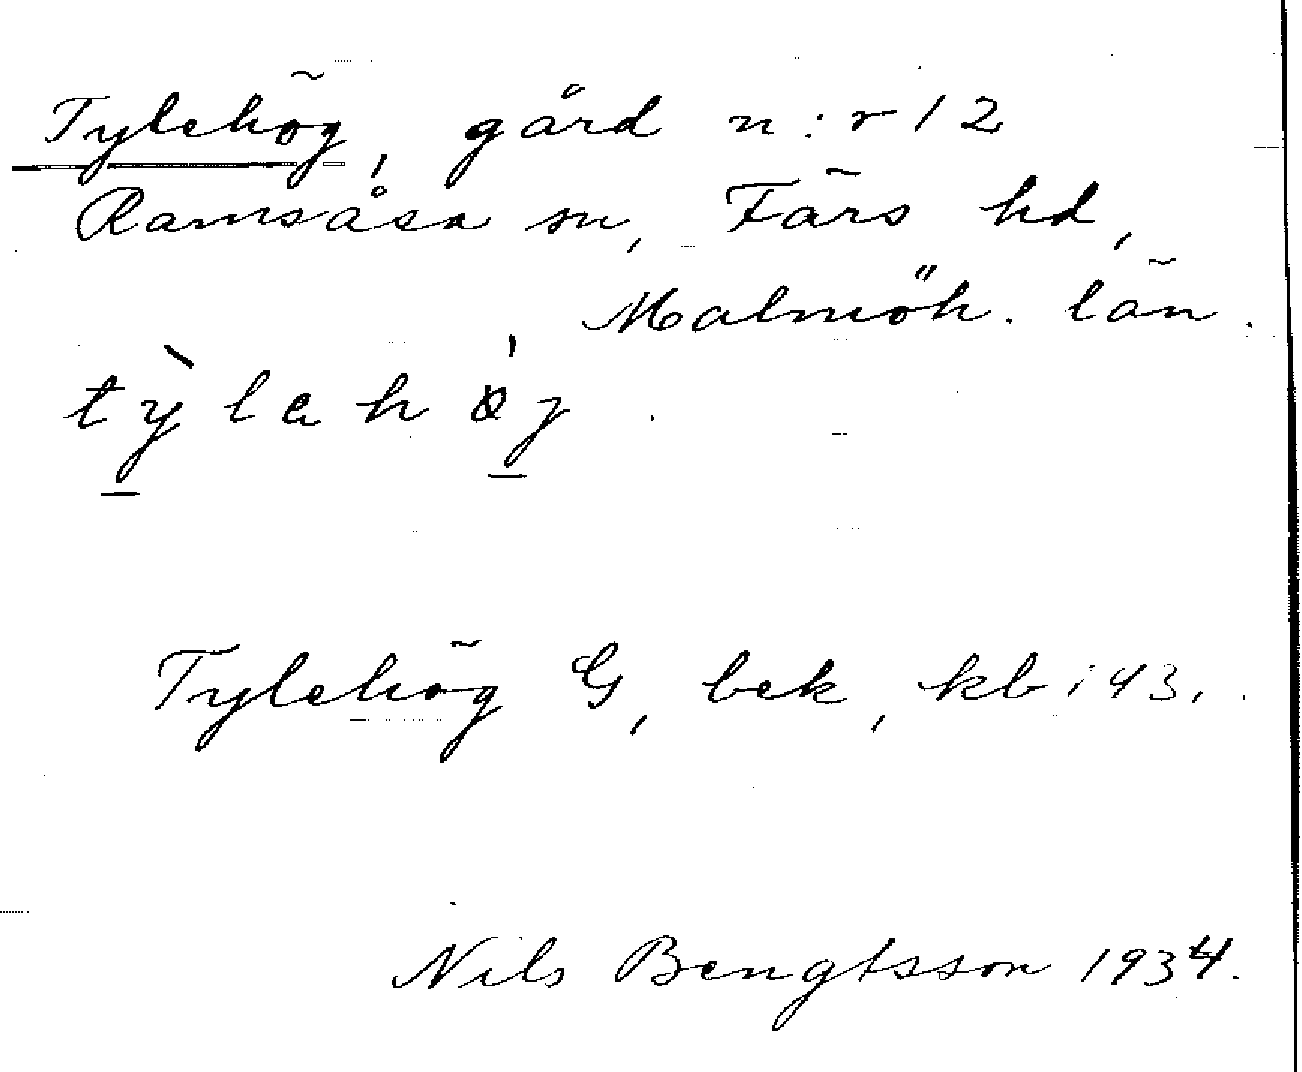 Tylehög, gård n:r 12
Ramsåsa sn, Färs hd,
Malmöh. län.
tỳlahøj.
Tylehög G, bek, kb i 43.
Nils Bengtsson 1934.